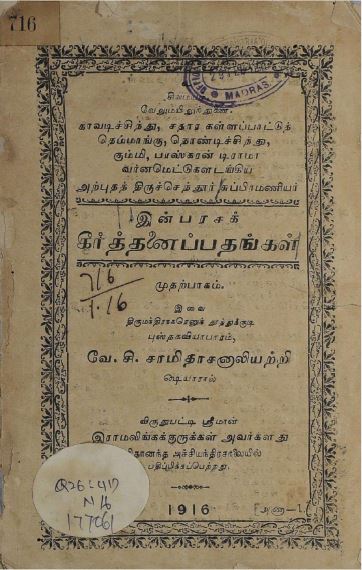 716
MADRAS
சிவமயம்
வேலும்மயிலுந்துணை.
காவடிச்சிந்து, சதார கள்ளப்பாட்டுத்
தெம்மாங்கு, தொண்டிச்சிந்து,
கும்மி, பயஸ்கரன் டிராமா
வர்னமெட்டுகளடங்கிய
அற்புதத் திருச்செந்தூர் சுப்பிரமணியர்
இன்பரசக்
கீர்த்தனைப்பதங்கள்
716
1.16
முதற்பாகம்.
இவை
திருமந்திரநகரெனுந் தூத்துக்குடி
புஸ்தகவியாபாரம்,
வே. சி. சாமிதாசனாலியற்றி
விருதுபட்டி ஸ்ரீமான்
இராமலிங்கக்குருக்கள் அவர்களது
அச்சியந்திரசாலையில்
பதிப்பிக்கப்பெற்றது.
1916
[அணா-1.
Q26:417
N16
177061